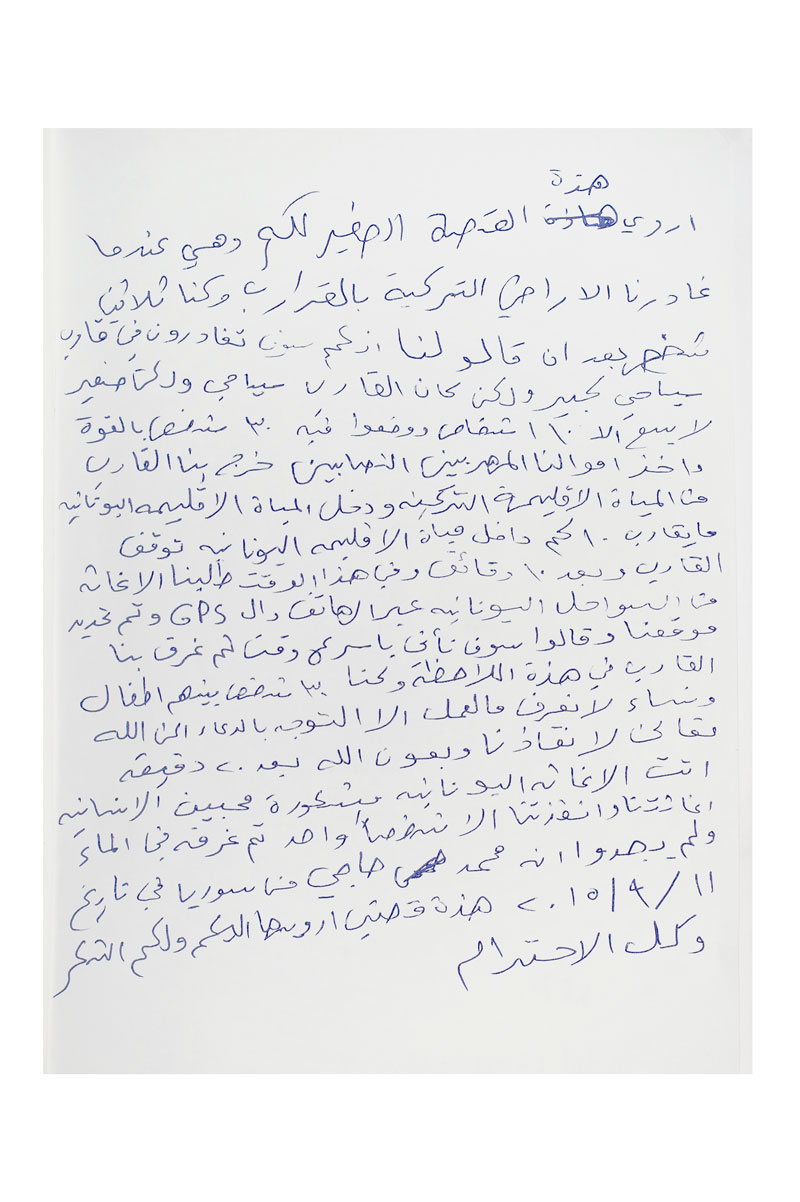 هذة
اروي القصة الصغير لكم وهي عندما
غادرنا الاراضي التركية بالقوارب وكنا ثلاثين
شخص بعد ان قالو لنا انكم سوف تغادرون في قارب
سياحي كبير ولكن كان القارب سياحي ولكن صغير
لا يسع الا ١٠ اشخاص ووضعوا فيه ٣٠ شخص بالقوة
واخذ اموالنا المهربين النصابين خرج بنا القارب
من المياة الاقليمة التركيه ودخل المياة الاقليمه اليونانيه
مايقارب ١٠ كم داخل مياة الاقليمه اليونانيه توقف
القارب وبعد ١٠ دقائق وفي هذا الوقت طالبنا الاغاثه
من السواحل اليونانيه عبر الهاتف وال GPS وتم تحديد
موقعنا وقالوا سوف نأتي باسرع وقت ثم غرق بنا
القارب في هذة اللاحظة وكنا ٣٠ شخص بينهم اطفال
ونساء لانعرف مالعمل الا التوجه بالدعاء الى الله
تعالى لانقاذنا وبعون الله بعد ٢٠ دقيقه
اتت الاغاثه اليونانيه مشكورة محبين الانسانيه
اغاثتنا وانقذتنا الا شخصاً واحد تم غرقه في الماء
ولم يجدوا انه محمد حاجي من سوريا في تاريخ
١١/٩/٢٠١٥ هذة قصتي ارويها اليكم ولكم الشكر
وكل الاحترام